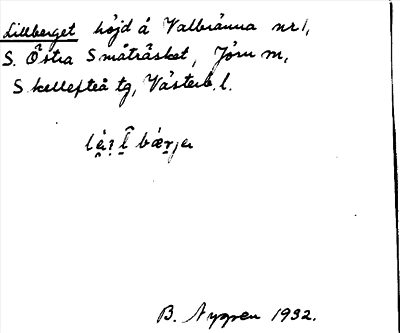 Lillberget höjd å Valbränna nr 1,
S. Östra Småträsket, Jörn m,
Skellefteå tg, Västerb. l.
B. Nygren 1932.